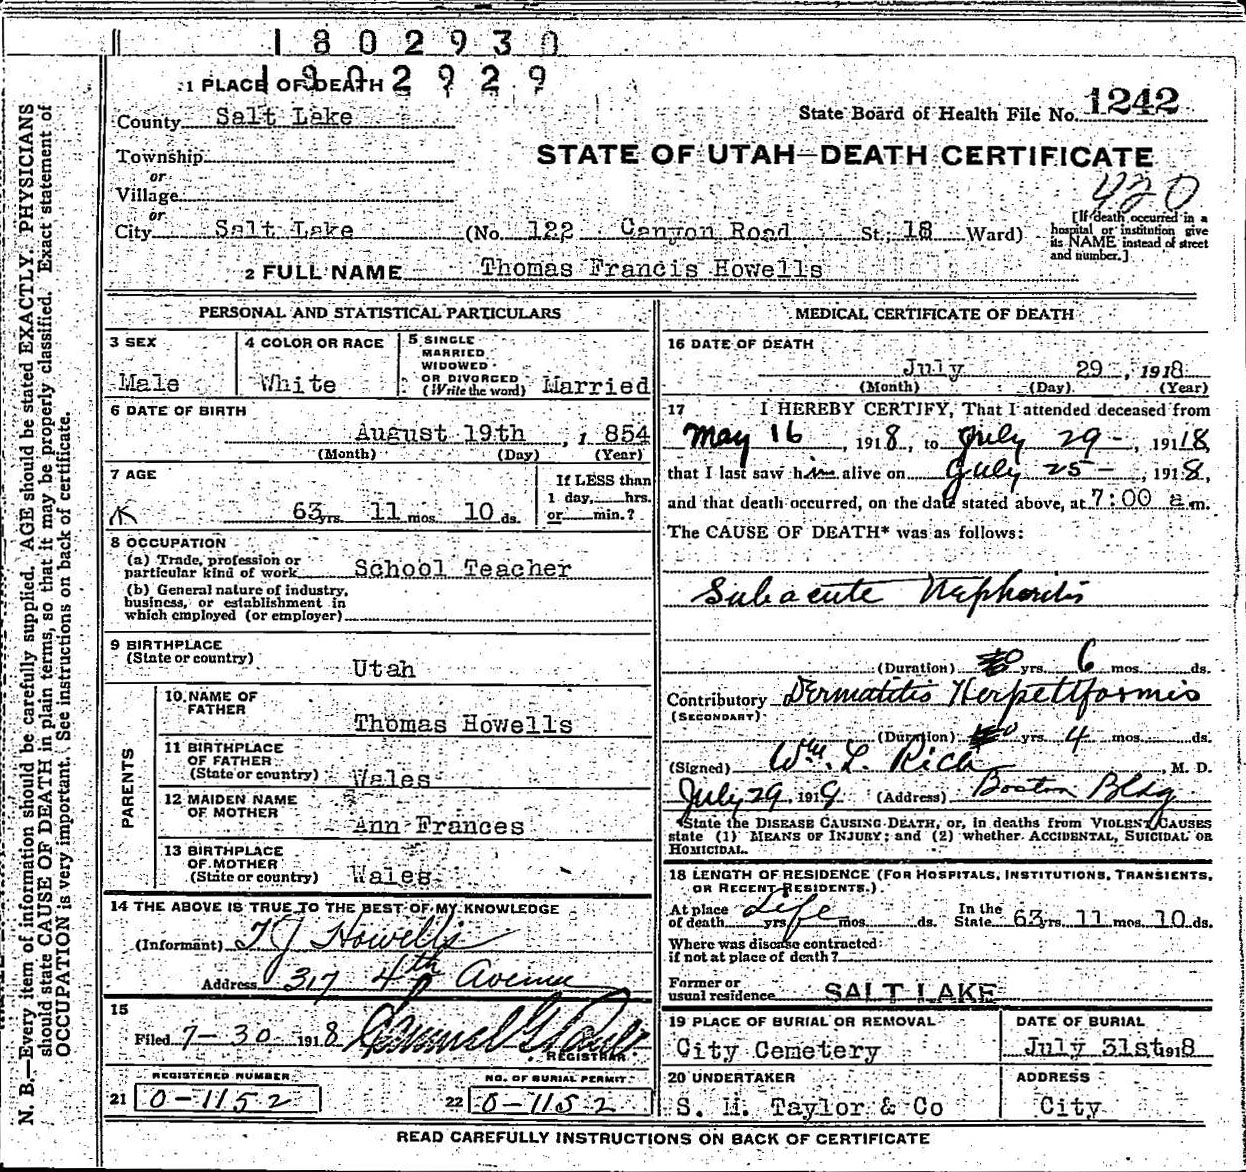 1802930
1802929
1 PLACE OF DEATH
County Salt Lake
State Board of Health File No. 1242
Township
or
Village
or
STATE OF UTAH—DEATH CERTIFICATE
420
City Salt Lake (No. 122 Canyon Road St.; 18 Ward)
[If death occurred in a
hospital or institution give
its NAME instead of street
and number.]
2 FULL NAME Thomas Francis Howells
PERSONAL AND STATISTICAL PARTICULARS
3 SEX
Male
4 COLOR OR RACE
White
5 SINGLE
MARRIED
WIDOWED
OR DIVORCED
(Write the word) Married
6 DATE OF BIRTH
August 19th, 1 854
(Month) (Day) (Year)
7 AGE
63 yrs. 11 mos. 10 ds.
If LESS than
1 day, hrs.
or min.?
8 OCCUPATION
(a) Trade, profession or
particular kind of work School Teacher
(b) General nature of industry,
business, or establishment in
which employed (or employer)
9 BIRTHPLACE
(State or country)
Utah
PARENTS
10 NAME OF
FATHER
Thomas Howells
11 BIRTHPLACE
OF FATHER
(State or country) Wales
12 MAIDEN NAME
OF MOTHER
Ann Frances
13 BIRTHPLACE
OF MOTHER
(State or country) Wales
14 THE ABOVE IS TRUE TO THE BEST OF MY KNOWLEDGE
(Informant) T J Howells
Address 317 4th Avenue
15
Filed 7-30 1918
REGISTRAR
REGISTERED NUMBER
21 0-1152
NO. OF BURIAL PERMIT
22 0-1152
MEDICAL CERTIFICATE OF DEATH
16 DATE OF DEATH
July 29, 1918
(Month) (Day) (Year)
17 I HEREBY CERTIFY, That I attended deceased from
May 16, 1918, to July 29-, 19118,
that I last saw him alive on July 25-, 1918,
and that death occurred, on the date stated above, at 7:00 a.m.
The CAUSE OF DEATH* was as follows:
Subacute Nephritis
(Duration) yrs. 6 mos. ds.
Contributory Dermatitis Herpetiformis
(SECONDARY)
(Duration) yrs. 4 mos. ds.
(Signed) Wm. L. Rich M. D.
July 29, 1918 (Address) Boston Bldg
*State the DISEASE CAUSING DEATH, or, in deaths from VIOLENT CAUSES
state (1) MEANS OF INJURY; and (2) whether ACCIDENTAL, SUICIDAL OR
HOMICIDAL.
18 LENGTH OF RESIDENCE (FOR HOSPITALS, INSTITUTIONS, TRANSIENTS,
OR RECENT RESIDENTS.)
At place
of death Life yrs. mos. ds. In the
State 63 yrs. 11 mos. 10 ds.
Where was disease contracted
if not at place of death?
Former or
usual residence SALT LAKE
19 PLACE OF BURIAL OR REMOVAL
City Cemetery
DATE OF BURIAL
July 31st 1918
20 UNDERTAKER
S. M. Taylor & Co
ADDRESS
City
READ CAREFULLY INSTRUCTIONS ON BACK OF CERTIFICATE
N. B.—Every item of information should be carefully supplied. AGE should be stated EXACTLY. PHYSICIANS
should state CAUSE OF DEATH in plain terms, so that it may be properly classified. Exact statement of
OCCUPATION is very important. See instructions on back of certificate.